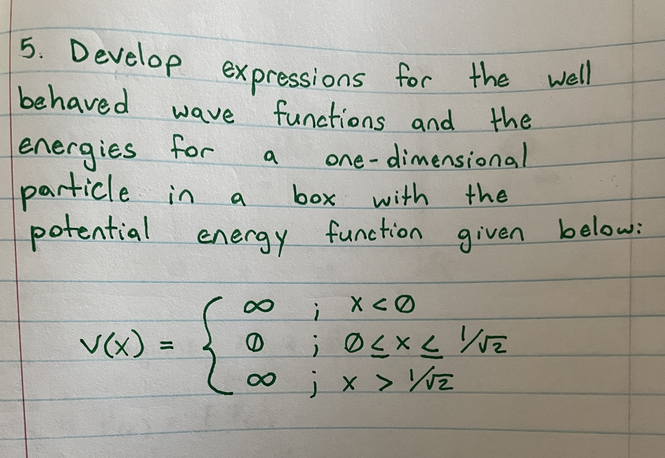 5. Develop expressions for the well
behaved wave functions and the
energies for a one-dimensional
particle in a box with the
potential energy function given below:
∞ ; x < 0
V(x) = { 0 ; 0 ≤ x ≤ 1/√2
∞ ; x > 1/√2